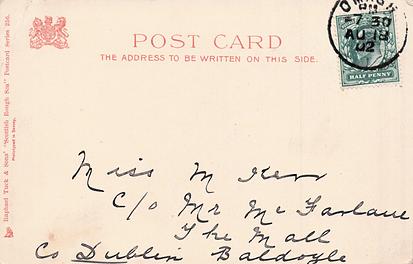 OMAGH
PM
7 30
AU 18
02
HALF PENNY
POST CARD
THE ADDRESS TO BE WRITTEN ON THIS SIDE.
Raphael Tuck & Sons' "Scottish Rough Sea" Postcard Series 256.
Miss M Kerr
C/o Mr McFarlane
The Mall
Co Dublin Baldoyle